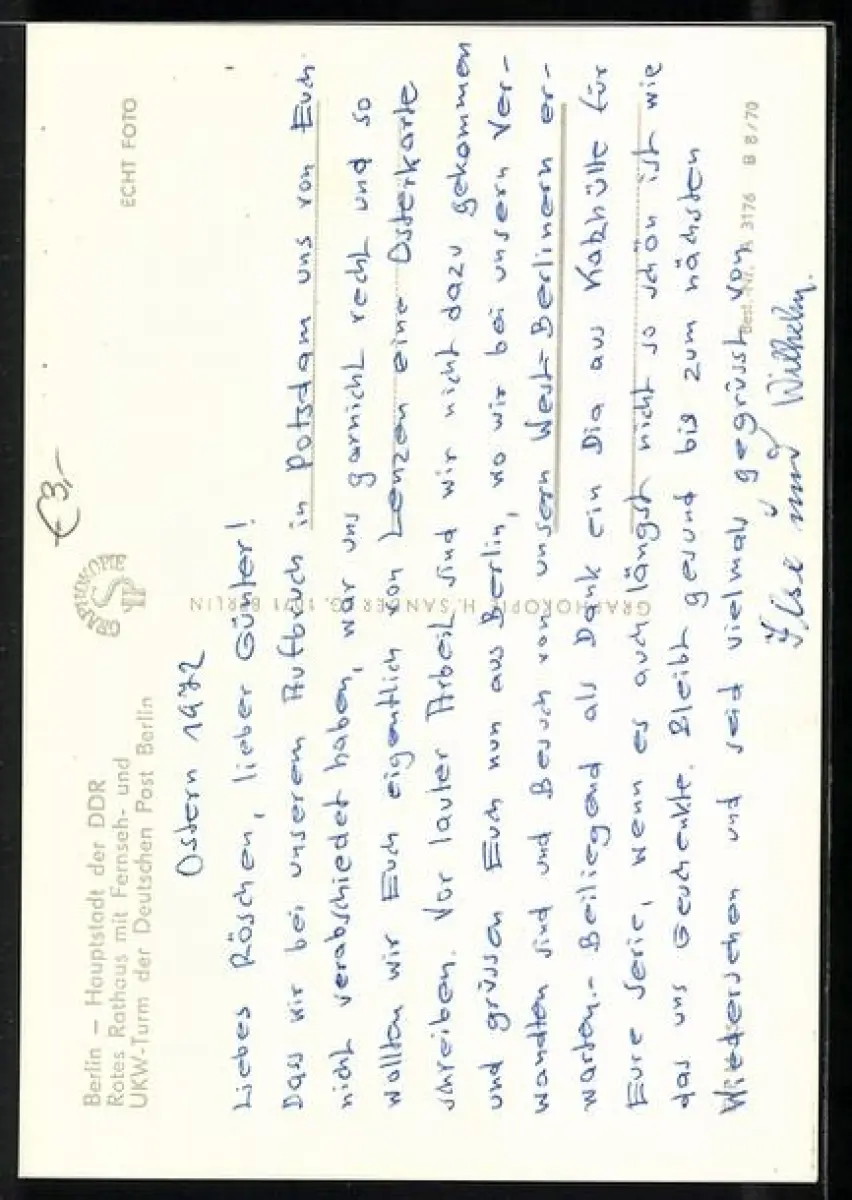 Berlin – Hauptstadt der DDR
Rotes Rathaus mit Fernseh- und
UKW-Turm der Deutschen Post Berlin
GRAPHOKOPIE
€3,-
ECHT FOTO
Ostern 1972
Liebes Röschen, lieber Günter!
Dass wir bei unserem Aufbruch in Potsdam uns von Euch
nicht verabschiedet haben, war uns garnicht recht und so
wollten wir Euch eigentlich von Lenzen eine Osterkarte
schreiben. Vor lauter Arbeit sind wir nicht dazu gekommen
und grüssen Euch nun aus Berlin, wo wir bei unsern Ver-
wandten sind und Besuch von unsern West-Berlinern er-
warten.- Beiliegend als Dank ein Dia aus Katzhütte für
Eure Serie, wenn es auch längst nicht so schön ist wie
das uns Geschenkte. Bleibt gesund bis zum nächsten
Wiedersehen und seid vielmals gegrüsst von
Ilse und Wilhelm.
GRAPHOKOPIE H. SANDER KG, 1071 BERLIN
Best.-Nr. A 3176 B 8/70